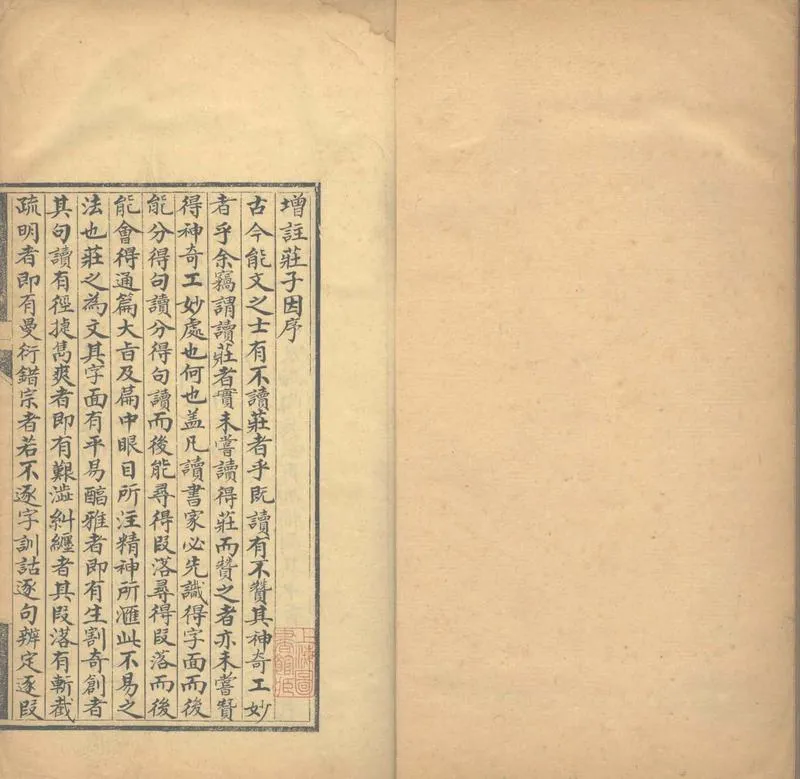 增註莊子因序
古今能文之士有不讀莊者乎既讀有不贊其神奇工妙
者乎余竊謂讀莊者實未嘗讀得莊而贊之者亦未嘗贊
得神奇工妙處也何也盖凡讀書家必先識得字面而後
能分得句讀分得句讀而後能尋得段落尋得段落而後
能會得通篇大旨及篇中眼目所注精神所滙此不易之
法也莊之為文其字面有平易醕雅者即有生割奇創者
其句讀有徑捷雋爽者即有艱澁糾纏者其段落有斬截
疏明者即有曼衍錯宗者若不逐字訓詁逐句辨定逐段
上海圖
書館藏